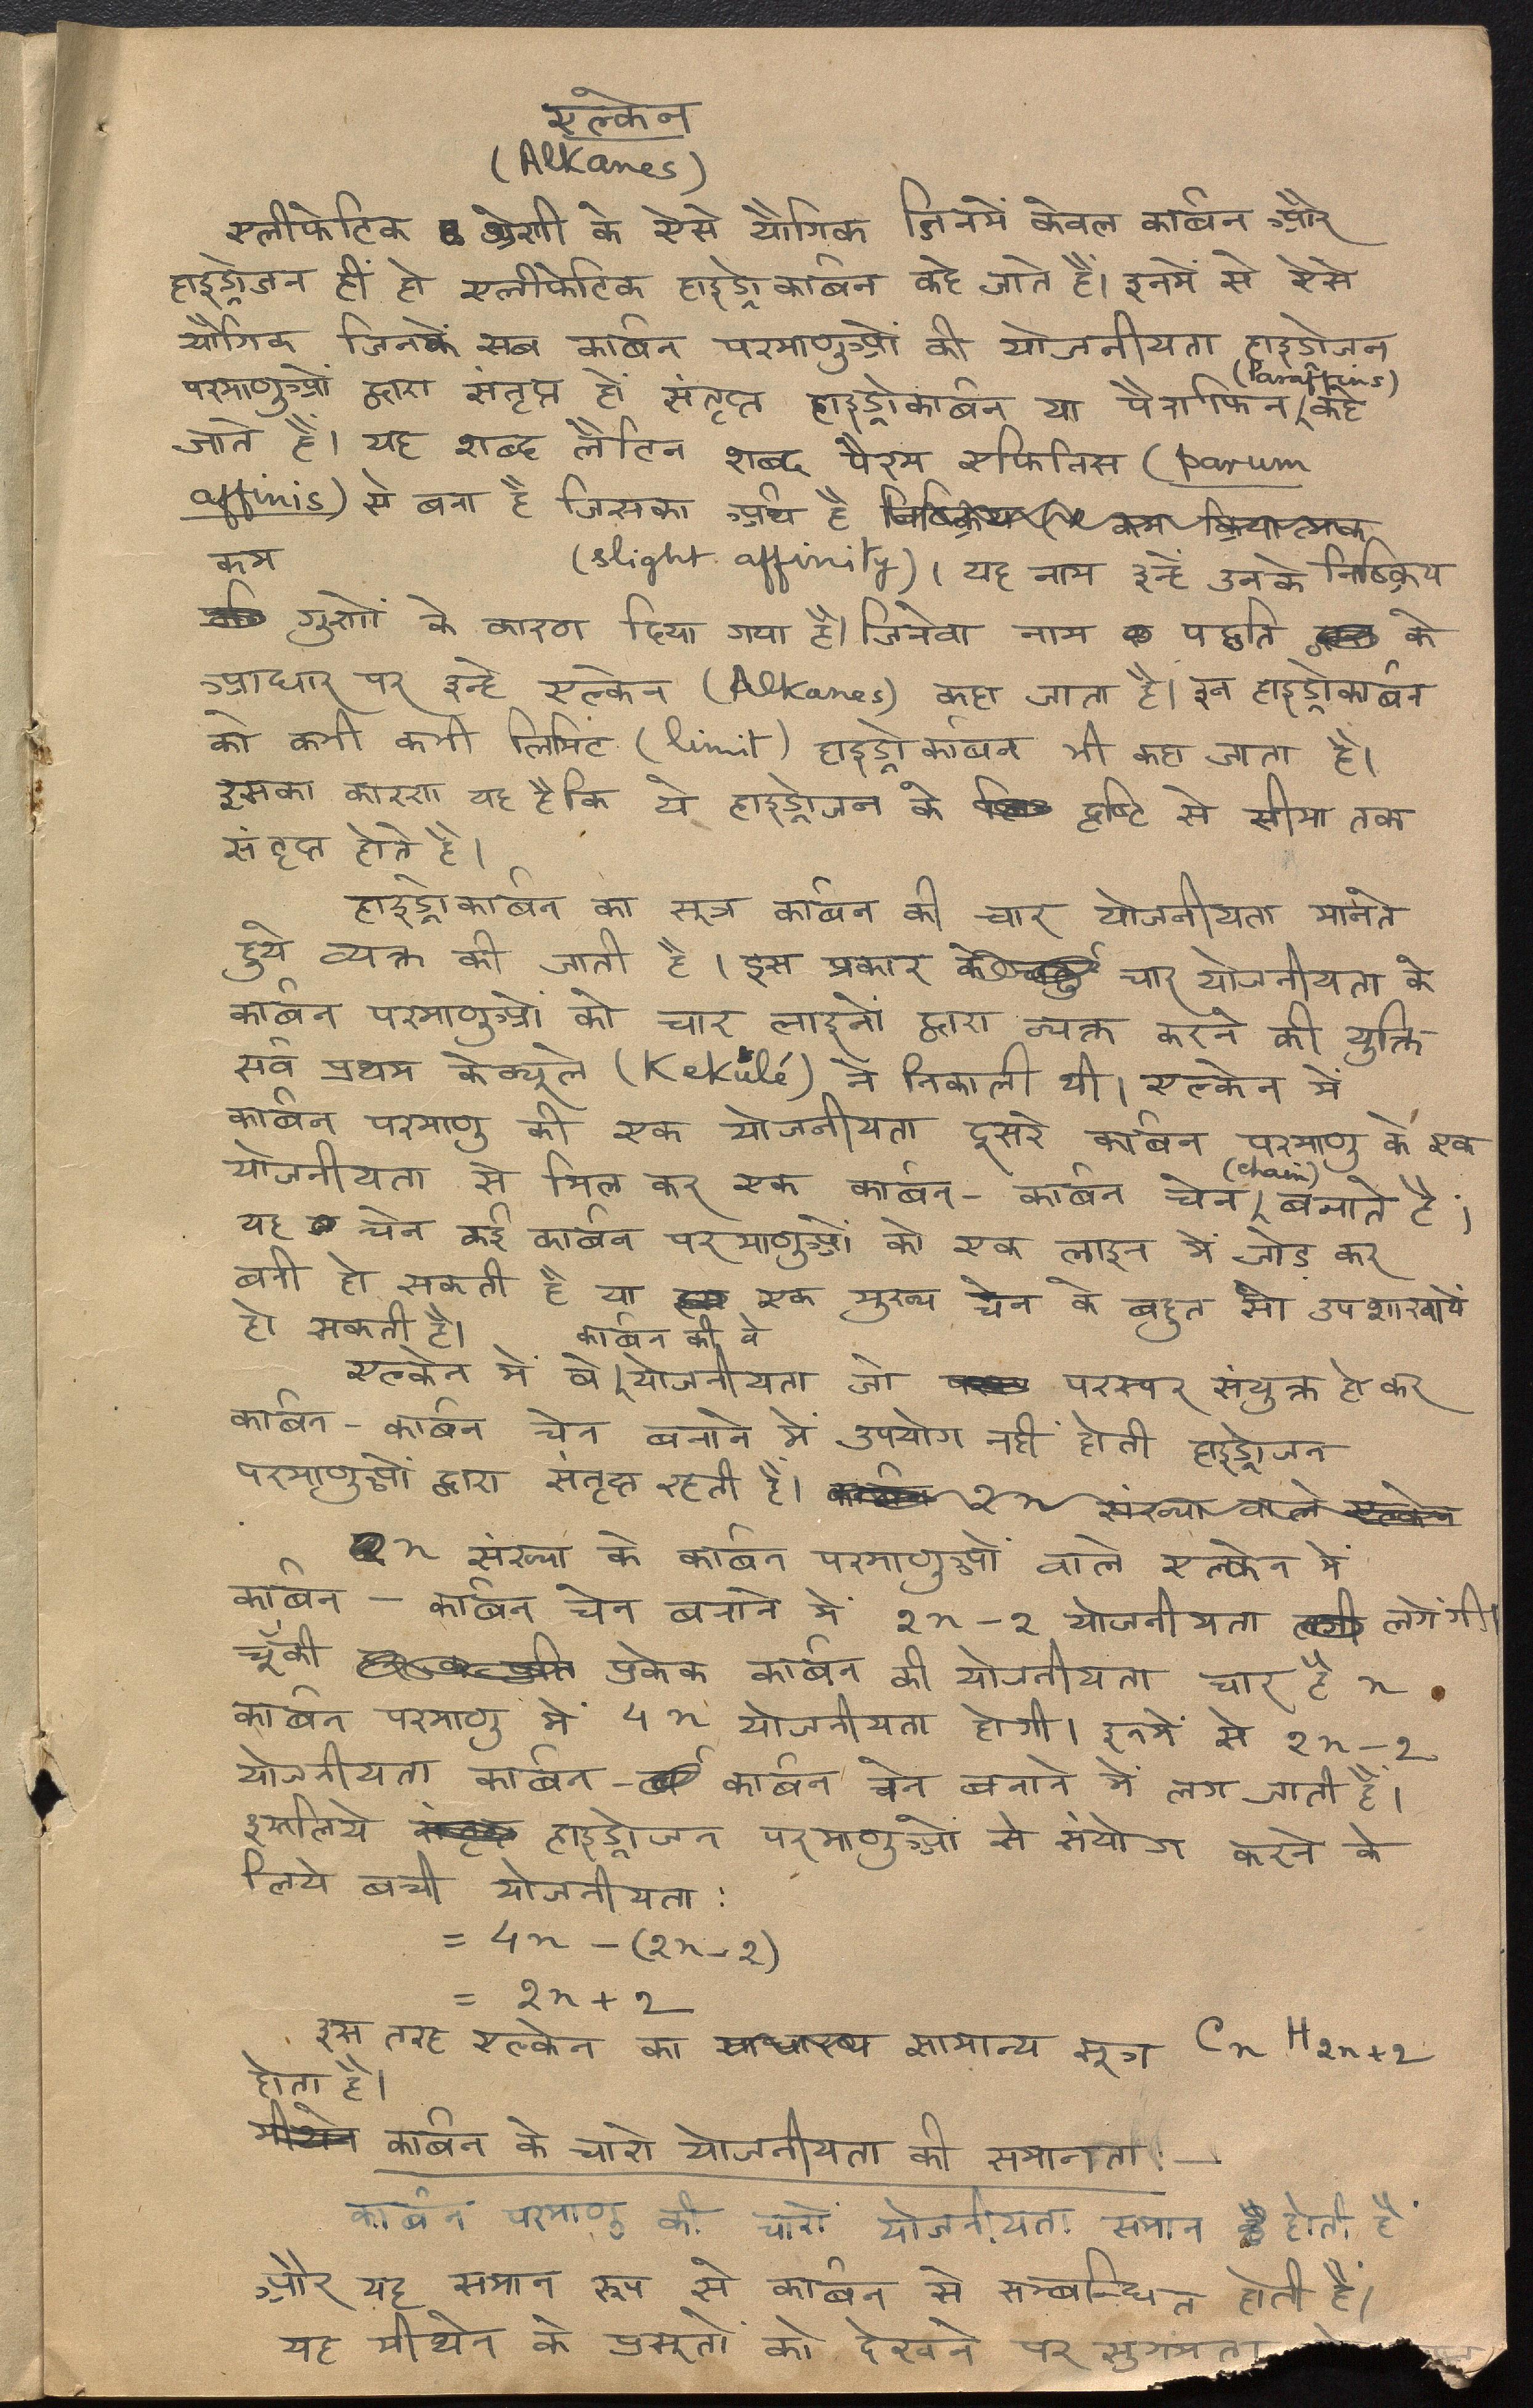 एल्केन
(Alkanes)
एलीफेटिक श्रेणी के ऐसे यौगिक जिनमें केवल कार्बन और
हाइड्रोजन हीं हो एलीफेटिक हाइड्रोकार्बन कहे जाते हैं। इनमें से ऐसे
यौगिक जिनके सब कार्बन परमाणुओं की योजनीयता हाइड्रोजन
परमाणुओं द्वारा संतृप्त हों संतृप्त हाइड्रोकार्बन या पैराफिन (Paraffins) कहे
जाते हैं। यह शब्द लैटिन शब्द पैरम एफिनिस (parum
affinis) से बना है जिसका अर्थ है निष्क्रिय या कम क्रियात्मक
कम (slight affinity)। यह नाम इन्हें उनके निष्क्रिय
गुणों के कारण दिया गया है। जिनेवा नाम पद्धति के
आधार पर इन्हे एल्केन (Alkanes) कहा जाता है। इन हाइड्रोकार्बन
को कभी कभी लिमिट (limit) हाइड्रोकार्बन भी कहा जाता है।
इसका कारण यह है कि ये हाइड्रोजन के दृष्टि से सीमा तक
संतृप्त होते है।
हाइड्रोकार्बन का सूत्र कार्बन की चार योजनीयता मानते
हुये व्यक्त की जाती है। इस प्रकार चार योजनीयता के
कार्बन परमाणुओं को चार लाइनों द्वारा व्यक्त करने की युक्ति
सर्व प्रथम केक्यूले (Kekulé) ने निकाली थी। एल्केन में
कार्बन परमाणु की एक योजनीयता दूसरे कार्बन परमाणु के एक
योजनीयता से मिल कर एक कार्बन - कार्बन चेन (chain) बनाते है;
यह चेन कई कार्बन परमाणुओं को एक लाइन में जोड़ कर
बनी हो सकती है या एक मुख्य चेन के बहुत सी उपशाखायें
हो सकती है।
एल्केन में वे कार्बन की वे योजनीयता जो परस्पर संयुक्त हो कर
कार्बन - कार्बन चेन बनाने में उपयोग नहीं होती हाइड्रोजन
परमाणुओं द्वारा संतृप्त रहती हैं। कार्बन 2n संख्या वाले एल्केन
n संख्या के कार्बन परमाणुओं वाले एल्केन में
कार्बन - कार्बन चेन बनाने में 2n-2 योजनीयता लगेंगी।
चूँकी प्रत्येक कार्बन की योजनीयता चार है n
कार्बन परमाणु में 4n योजनीयता होगी। इनमें से 2n-2
योजनीयता कार्बन - कार्बन चेन बनाने में लग जाती हैं।
इसलिये संतृप्त हाइड्रोजन परमाणुओं से संयोग करने के
लिये बची योजनीयता:
= 4n - (2n-2)
= 2n+2
इस तरह एल्केन का साधारण सामान्य सूत्र CnH2n+2
होता है।
मीथेन कार्बन के चारो योजनीयता की समानता:—
कार्बन परमाणु की चारों योजनीयता समान होती हैं
और यह समान रूप से कार्बन से सम्बन्धित होती हैं।
यह मीथेन के प्रसूतों को देखने पर सुगमता